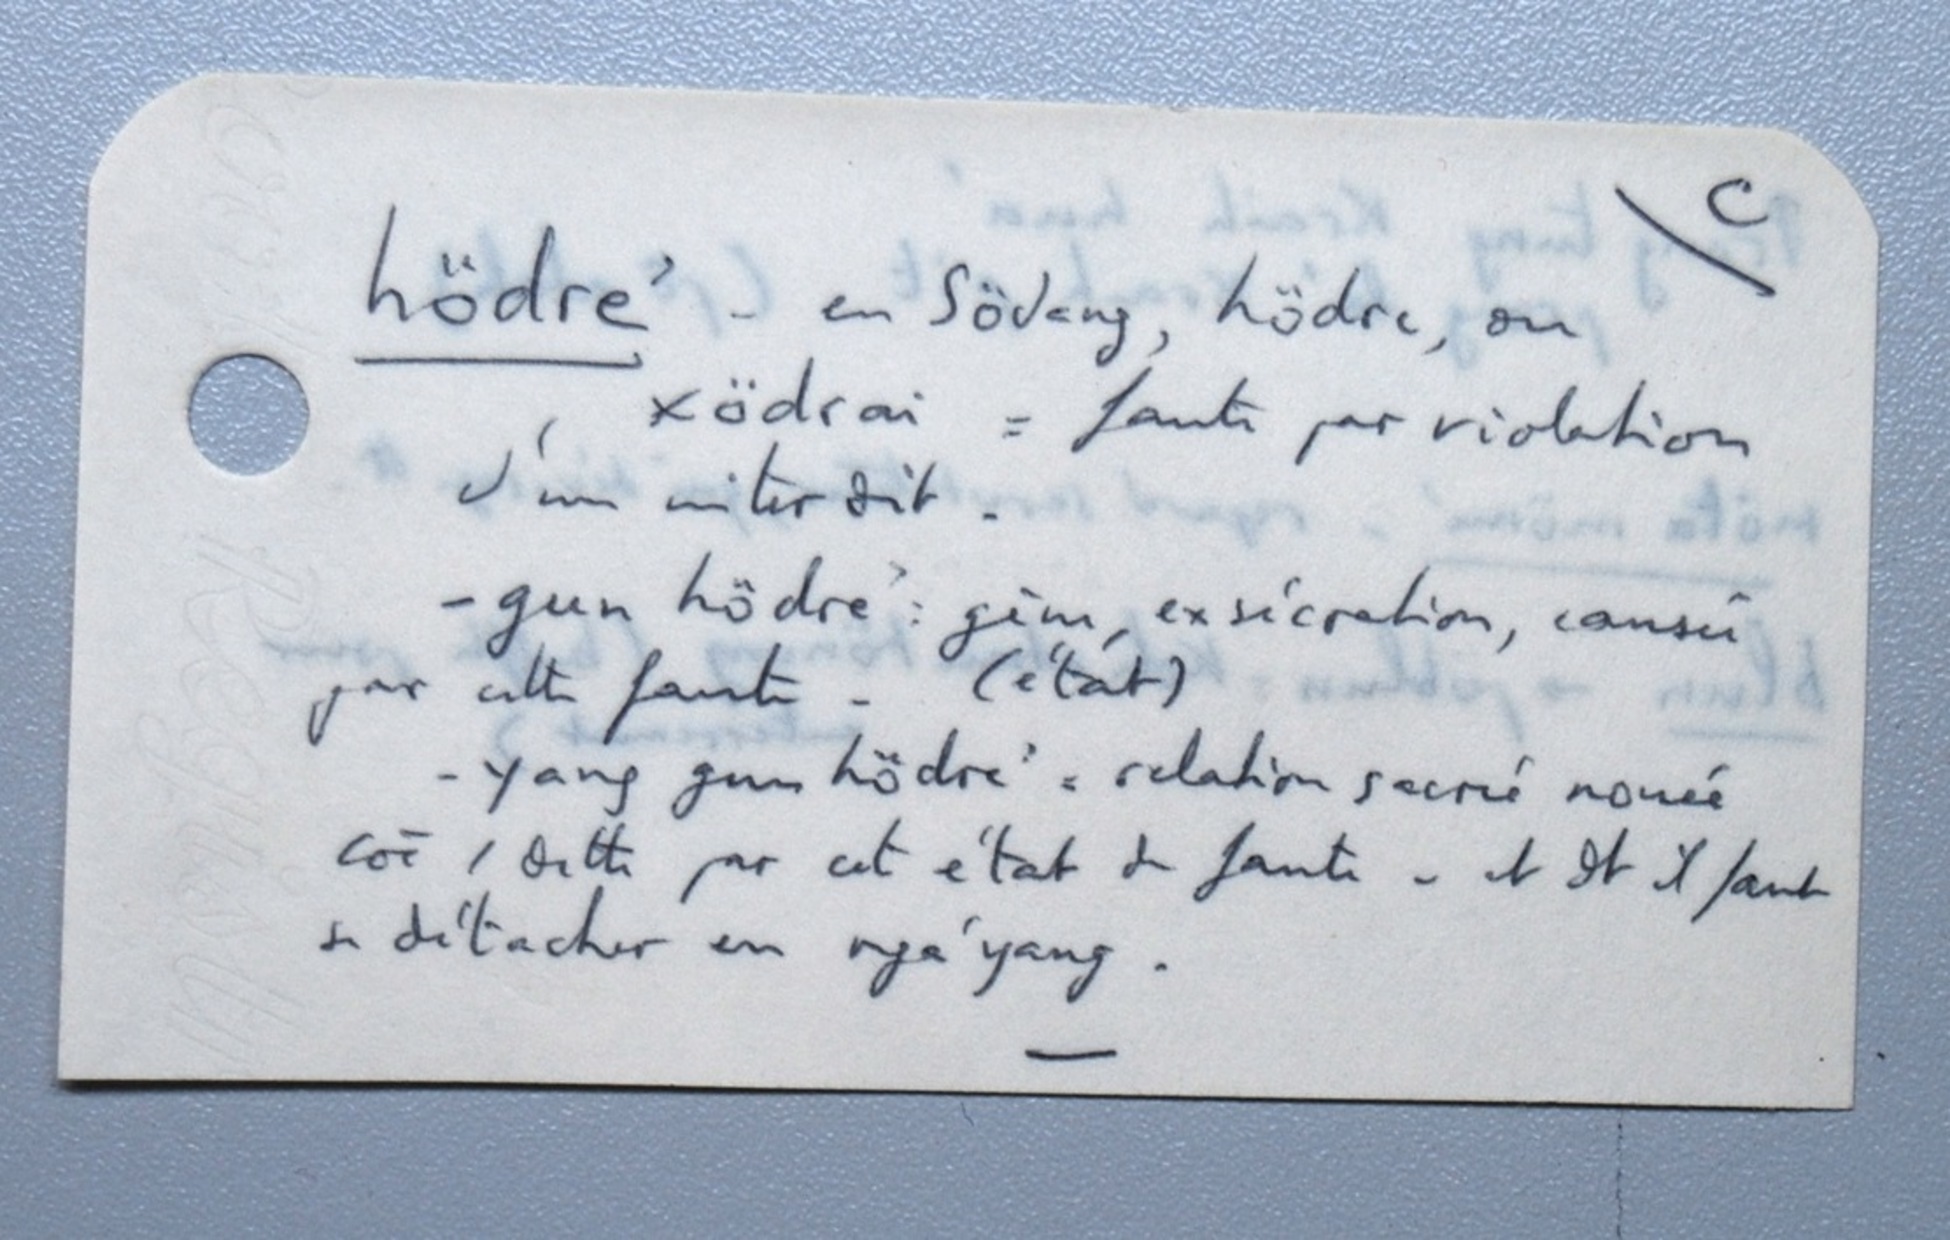 C
hödre' - en Södang, hödre, ou
xödrai = faute par violation
d'un interdit.
- gun hödre' : gêne, exsécration, causée
par cette faute - (état)
- yang gun hödre' = relation sacrée nouée
coe / dette par cet état de faute - et dt il faut
se détacher en ngá yang.